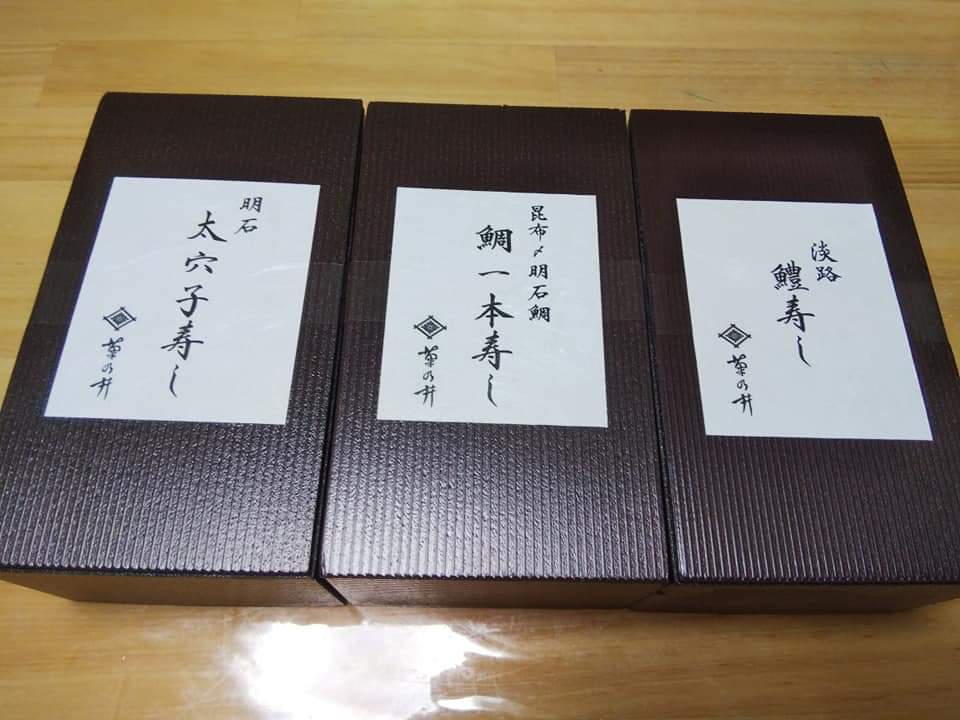 明石
太穴子寿し
菊乃井
昆布〆明石鯛
鯛一本寿し
菊乃井
淡路
鱧寿し
菊乃井